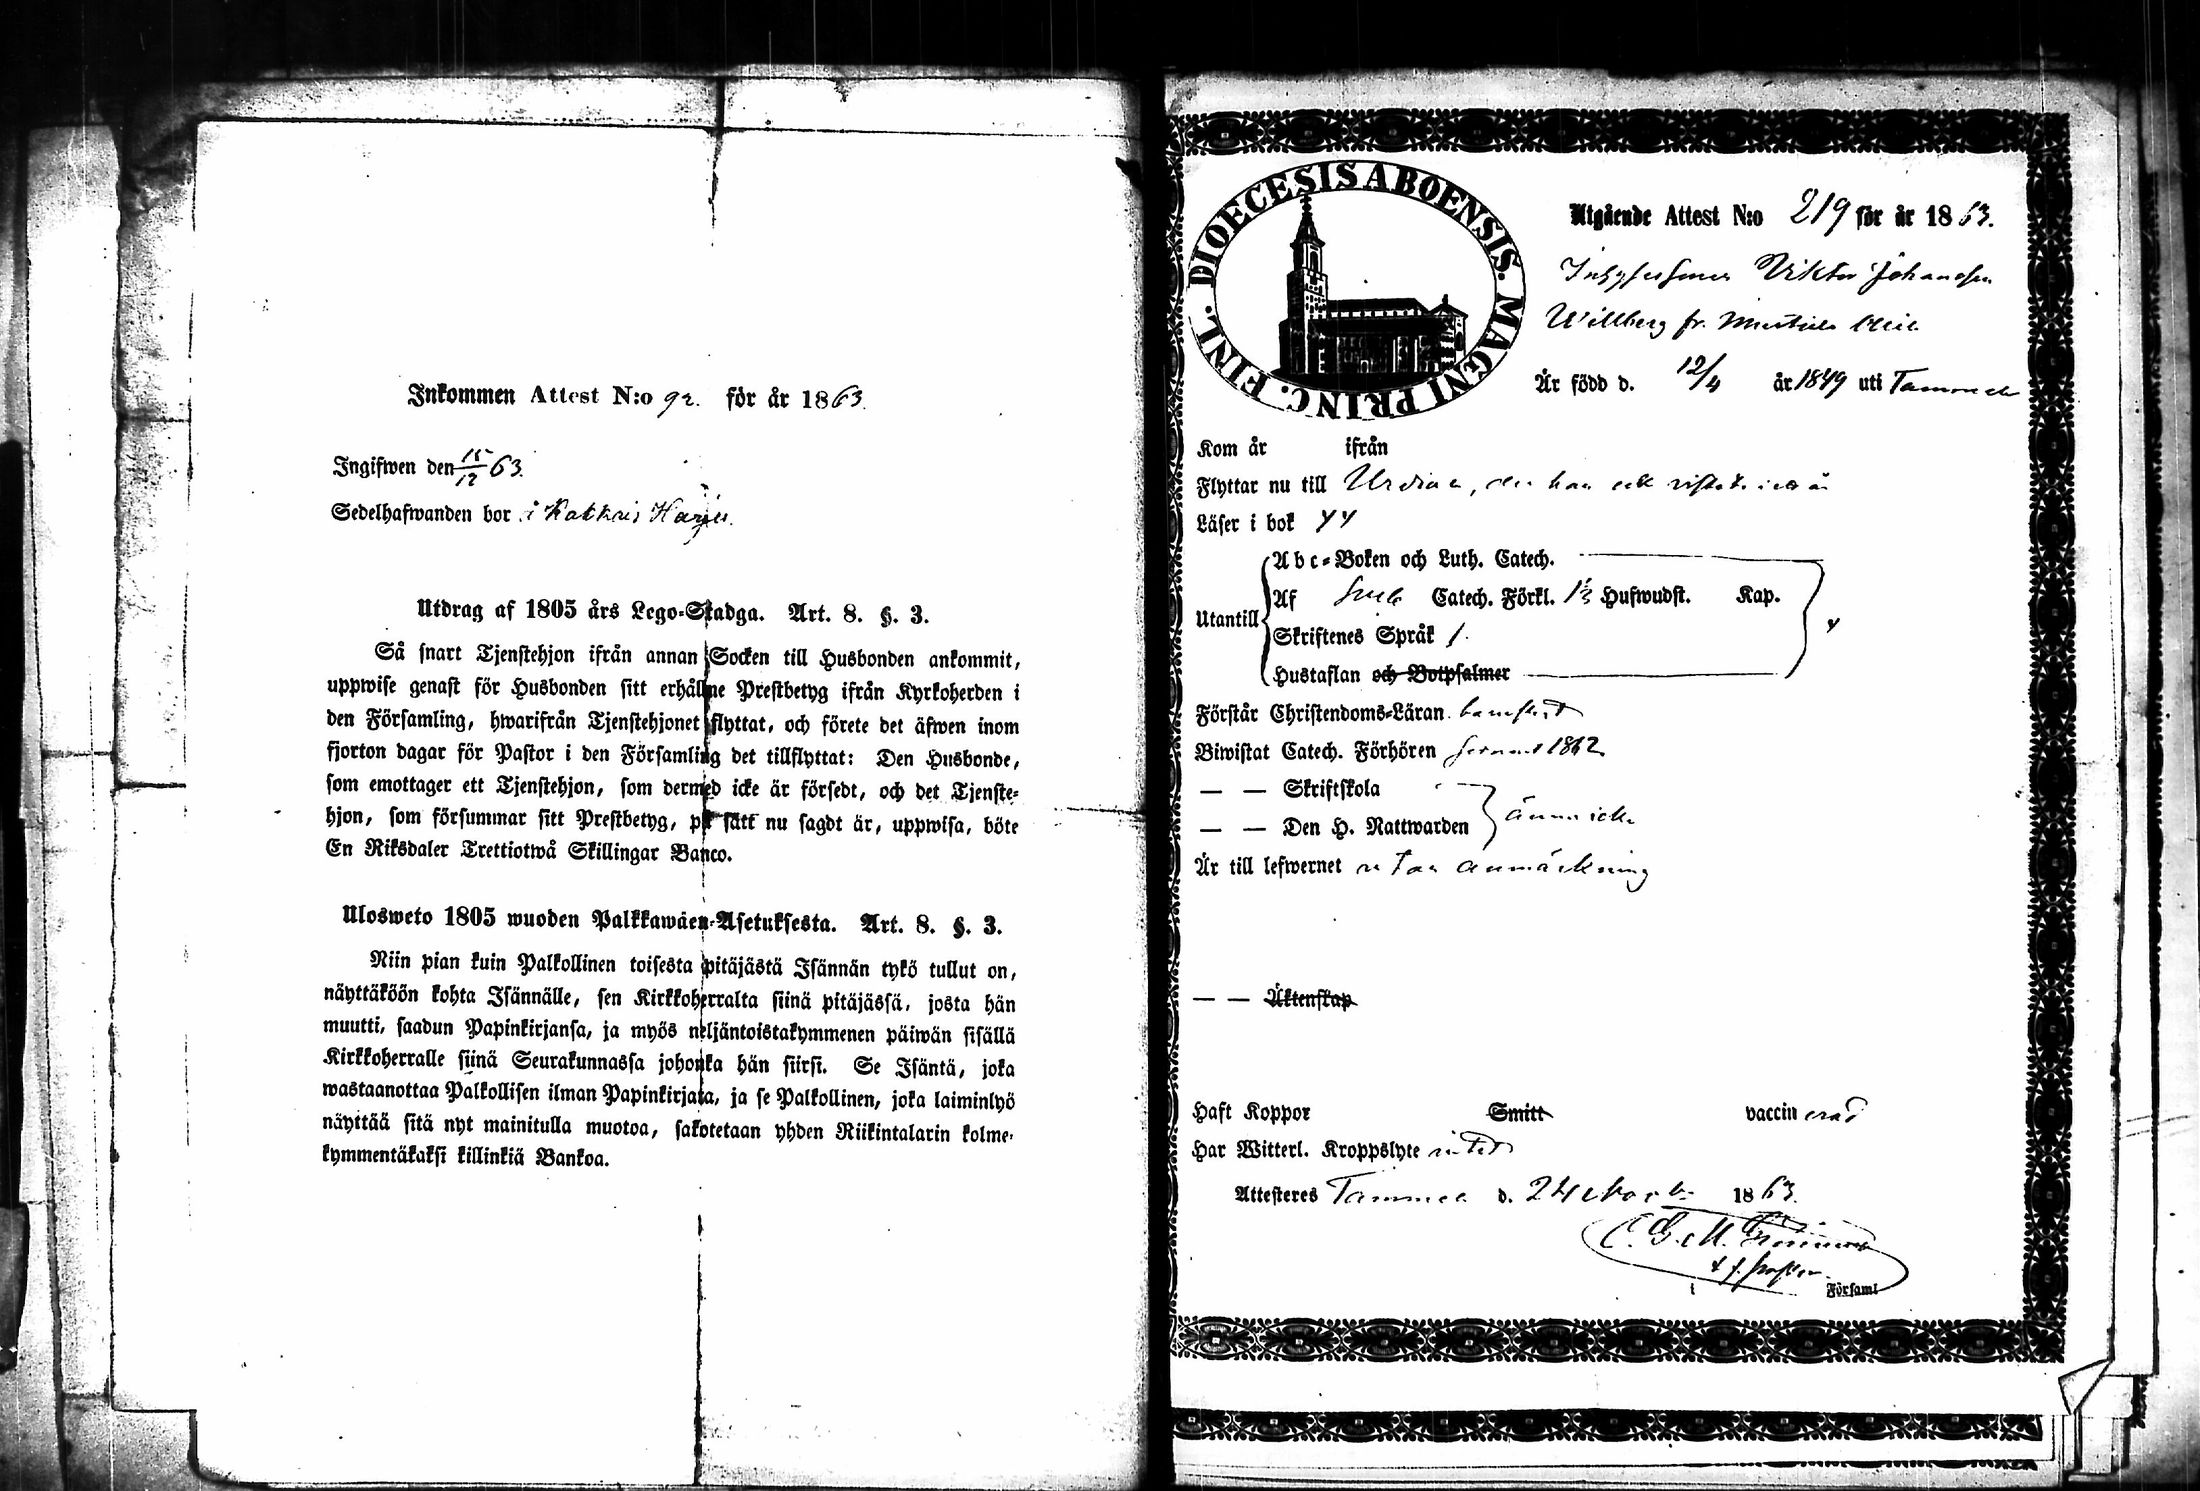 Inkommen Attest N:o 92. för år 1863.
Ingifwen den 15/12 63.
Sedelhafwanden bor i
Utdrag af 1805 års Lego-Stadga. Art. 8. §. 3.
Så snart Tjenstehjon ifrån annan Socken till Husbonden ankommit,
uppwise genast för Husbonden sitt erhållne Prestbetyg ifrån Kyrkoherden i
den Församling, hwarifrån Tjenstehjonet flyttat, och förete det äfwen inom
fjorton dagar för Pastor i den Församling det tillflyttat: Den Husbonde,
som emottager ett Tjenstehjon, som dermed icke är försedt, och det Tjenste-
hjon, som försummar sitt Prestbetyg, på sätt nu sagdt är, uppwisa, böte
En Riksdaler Trettiotwå Skillingar Banco.
Ulosweto 1805 wuoden Palkkawäen-Asetuksesta. Art. 8. §. 3.
Niin pian kuin Palkollinen toisesta pitäjästä Isännän tykö tullut on,
näyttäköön kohta Isännälle, sen Kirkkoherralta siinä pitäjässä, josta hän
muutti, saadun Papinkirjansa, ja myös neljäntoistakymmenen päiwän sisällä
Kirkkoherralle siinä Seurakunnassa johonka hän siirsi. Se Isäntä, joka
wastaanottaa Palkollisen ilman Papinkirjata, ja se Palkollinen, joka laiminlyö
näyttää sitä nyt mainitulla muotoa, sakotetaan yhden Riikintalarin kolme-
kymmentäkaksi killinkiä Bankoa.
DIOECESIS ABOENSIS. MAGNI PRINC. FINL.
Utgående Attest N:o 219 för år 1863.
Viktor Johansson
Willberg fr.
Är född d. 12/4 år 1849 uti Tammela
Kom år ifrån
Flyttar nu till Urdiala, der han
Läser i bok
Abc-Boken och Luth. Catech.
Utantill
Af Sveb. Catech. Förkl. 1½ Hufwudst. Kap.
Skriftenes Språk 1.
Hustaflan och Botpsalmer
Förstår Christendoms-Läran
Biwistat Catech. Förhören senast 1862
— — Skriftskola
— — Den H. Nattwarden
ännu icke
Är till lefwernet utan anmärkning
— — Äktenskap
Haft Koppor Smitt vaccinerad
Har Witterl. Kroppslyte intet
Attesteres Tammela d. 24 Novb. 1863.
Församl